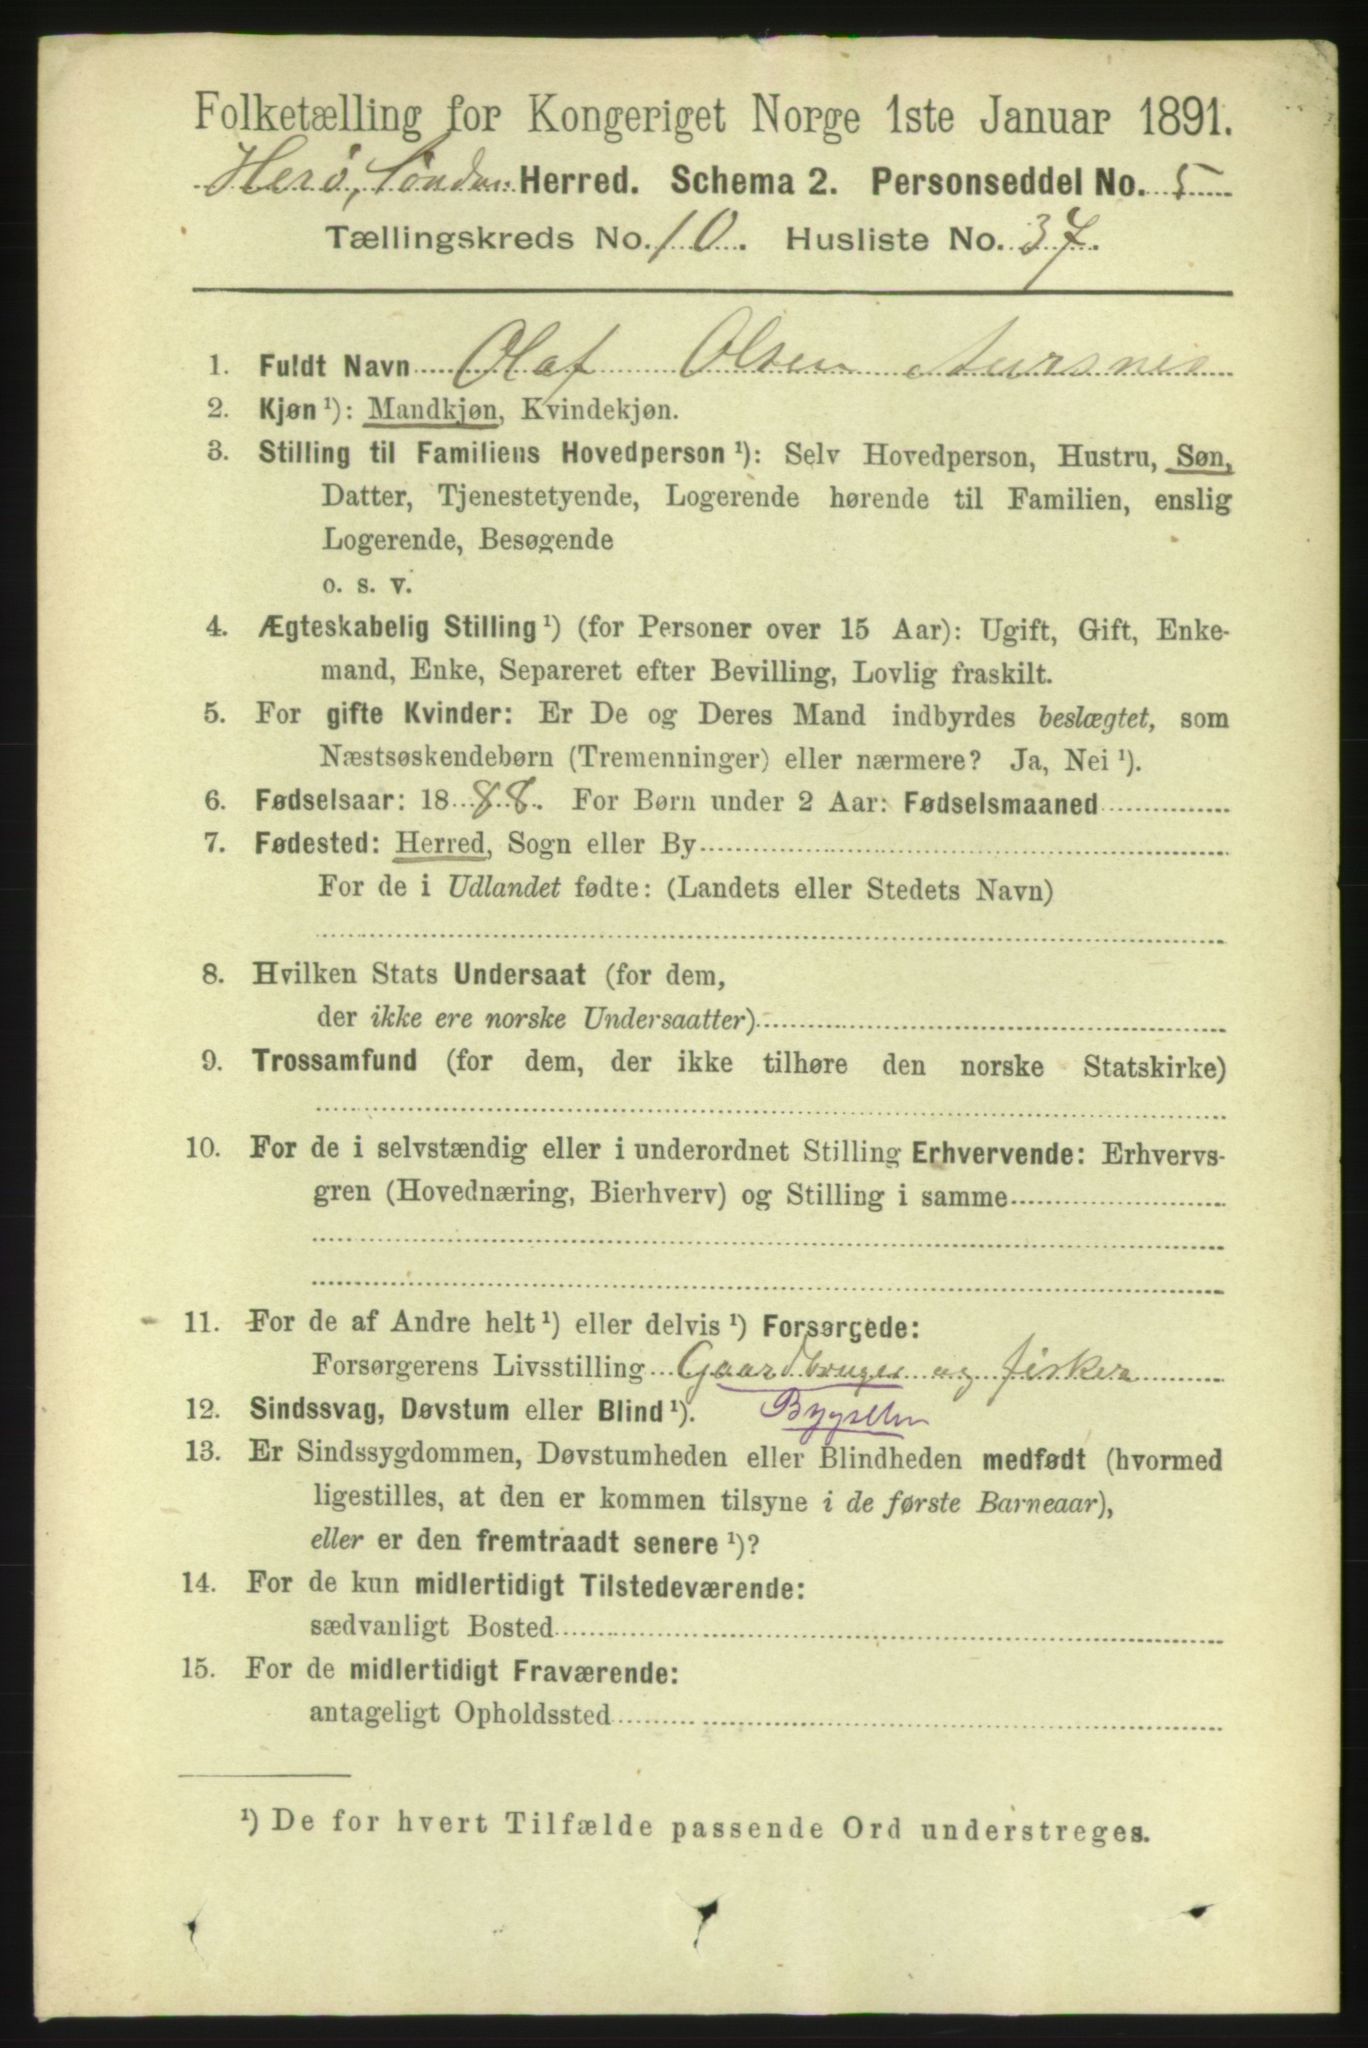 Folketælling for Kongeriget Norge 1ste Januar 1891.
Herø, Søndm. Herred. Schema 2. Personseddel No. 5
Tællingskreds No. 10. Husliste No. 37.
1. Fuldt Navn Olaf Olsen Aursnes
2. Kjøn ¹): Mandkjøn, Kvindekjøn.
3. Stilling til Familiens Hovedperson ¹): Selv Hovedperson, Hustru, Søn,
Datter, Tjenestetyende, Logerende hørende til Familien, enslig
Logerende, Besøgende
o. s. v.
4. Ægteskabelig Stilling ¹) (for Personer over 15 Aar): Ugift, Gift, Enke-
mand, Enke, Separeret efter Bevilling, Lovlig fraskilt.
5. For gifte Kvinder: Er De og Deres Mand indbyrdes beslægtet, som
Næstsøskendebørn (Tremenninger) eller nærmere? Ja, Nei ¹).
6. Fødselsaar: 1888. For Børn under 2 Aar: Fødselsmaaned
7. Fødested: Herred, Sogn eller By
For de i Udlandet fødte: (Landets eller Stedets Navn)
8. Hvilken Stats Undersaat (for dem,
der ikke ere norske Undersaatter)
9. Trossamfund (for dem, der ikke tilhøre den norske Statskirke)
10. For de i selvstændig eller i underordnet Stilling Erhvervende: Erhvervs-
gren (Hovednæring, Bierhverv) og Stilling i samme
11. For de af Andre helt ¹) eller delvis ¹) Forsørgede:
Forsørgerens Livsstilling Gaardbruger og fisker
12. Sindssvag, Døvstum eller Blind ¹). Bygselm
13. Er Sindssygdommen, Døvstumheden eller Blindheden medfødt (hvormed
ligestilles, at den er kommen tilsyne i de første Barneaar),
eller er den fremtraadt senere ¹)?
14. For de kun midlertidigt Tilstedeværende:
sædvanligt Bosted
15. For de midlertidigt Fraværende:
antageligt Opholdssted
¹) De for hvert Tilfælde passende Ord understreges.